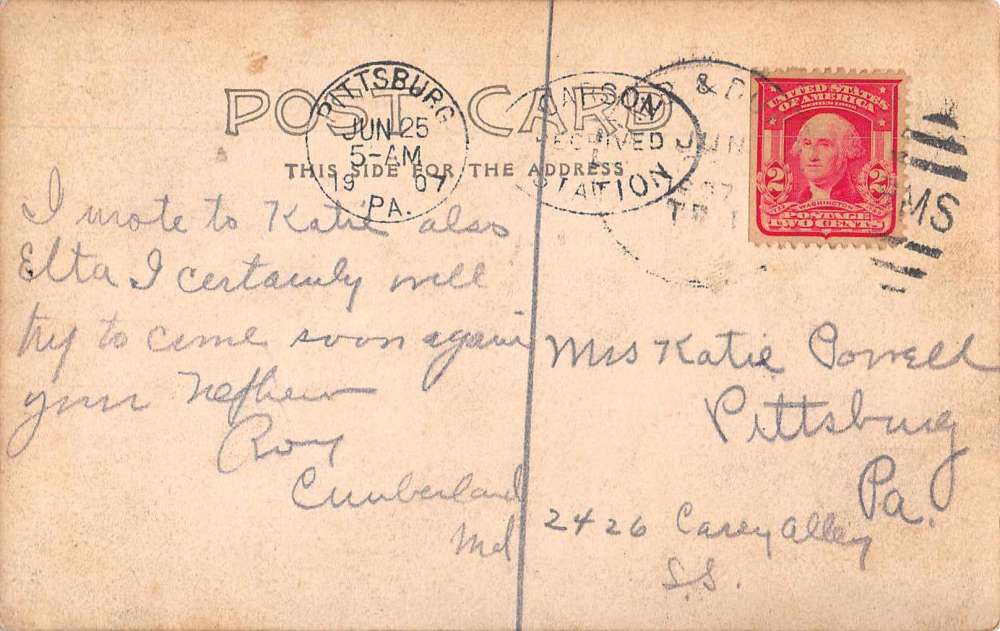 POST CARD
THIS SIDE FOR THE ADDRESS
PITTSBURG
JUN 25
5-AM
1907
PA.
CARSON
RECEIVED
STATION
JUN
1907
RMS
UNITED STATES
OF AMERICA
2 2
WASHINGTON
POSTAGE
TWO CENTS
I wrote to Katie also
Etta I certainly will
try to come soon again
your Nephew
Roy
Cumberland
Md
Mrs Katie Powell
Pittsburg
Pa.
2426 Carey Alley
S.S.